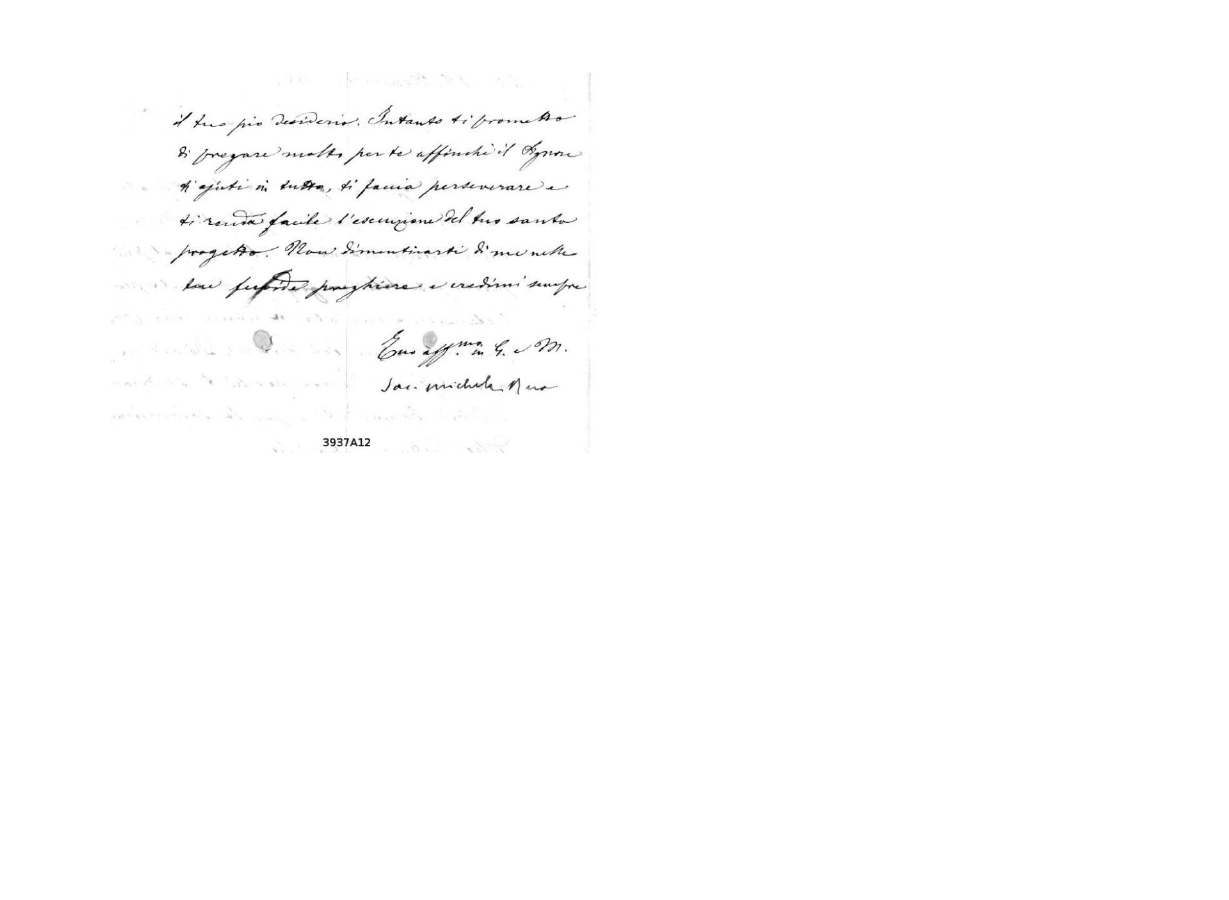 il tuo pio desiderio. Intanto ti prometto
di pregare molto per te affinchè il Signore
ti ajuti in tutto, ti faccia perseverare e
ti renda facile l'esecuzione del tuo santo
progetto. Non dimenticarti di me nelle
tue preghiere e credimi sempre
Tuo aff.mo in G. e M.
Sac. Michele Rua
3937A12